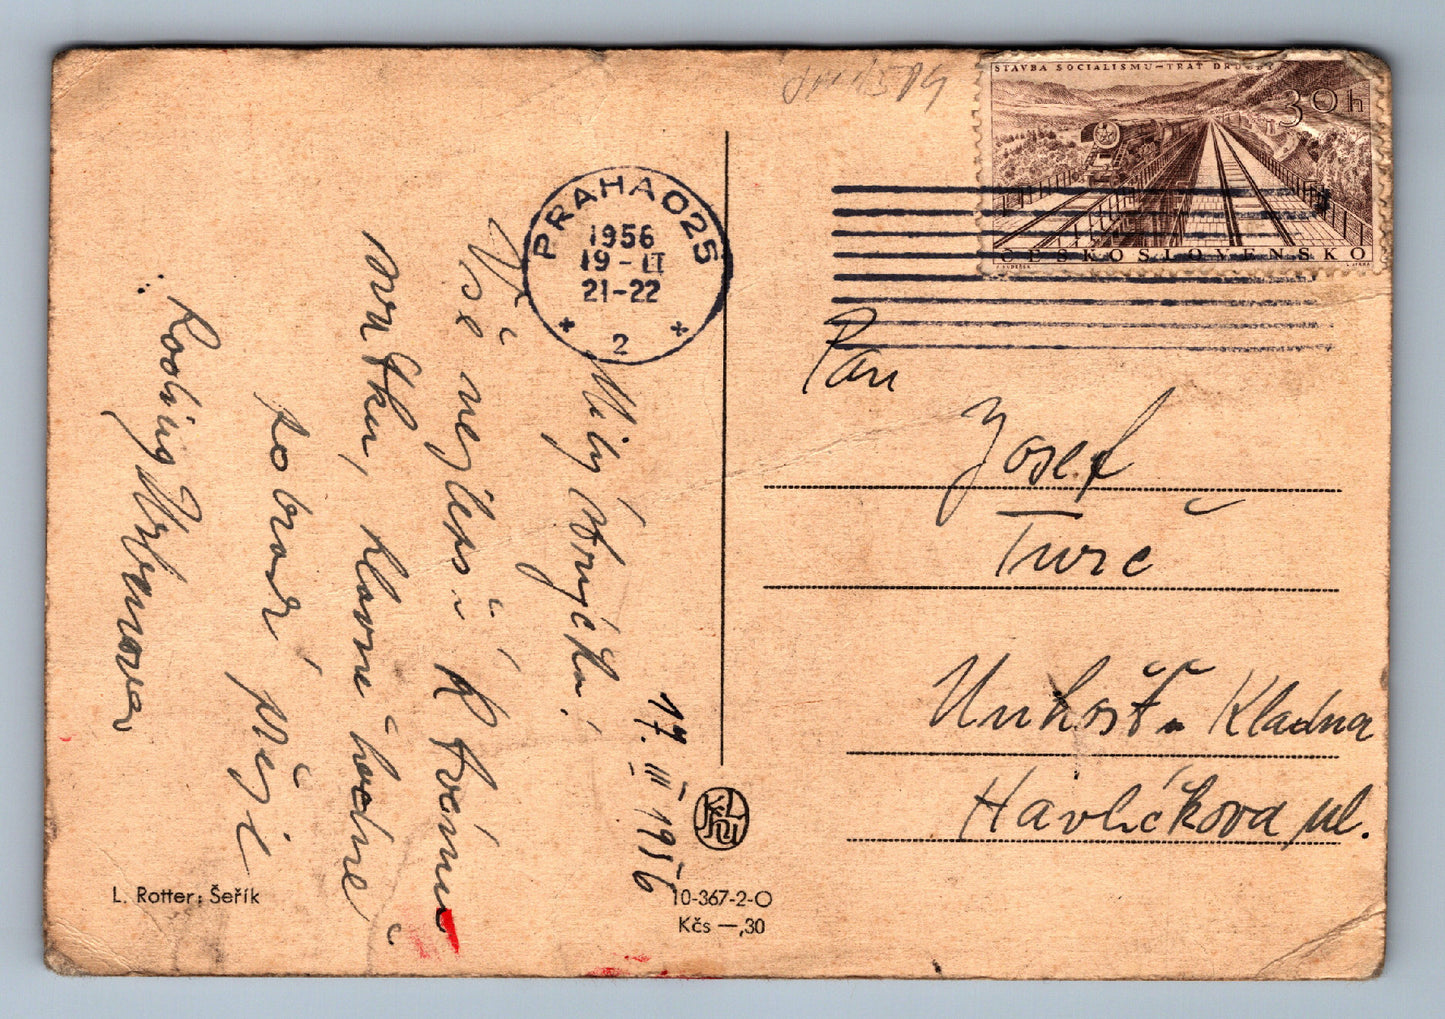 17. III 1956
Milý
Vše nejlepší K Tvému
svátku, hlavně hodně
zdraví přeje
Rodina Urbanova
L. Rotter: Šeřík
PRAHA 025
1956
19-II
21-22
2
10-367-2-O
Kčs —,30
STAVBA SOCIALISMU—TRAŤ DRUŽBY
30h
ČESKOSLOVENSKO
Pan
Josef
Turč
Unhošť u Kladna
Havlíčkova ul.